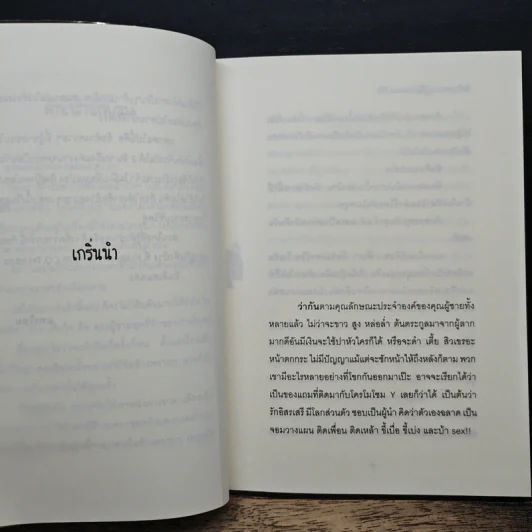 เกริ่นนำ
ว่ากันตามคุณลักษณะประจำองค์ของคุณผู้ชายทั้ง
หลายแล้ว ไม่ว่าจะขาว สูง หล่อล่ำ ต้นตระกูลมาจากผู้ลาก
มากดีอันมีเงินจะใช้ปาหัวใครก็ได้ หรือจะดำ เตี้ย สิวเขรอะ
หน้าตกกระ ไม่มีปัญญาแม้แต่จะชักหน้าให้ถึงหลังก็ตาม พวก
เขามีอะไรหลายอย่างที่โขกกันออกมาเป๊ะ อาจจะเรียกได้ว่า
เป็นของแถมที่ติดมากับโครโมโซม Y เลยก็ว่าได้ เป็นต้นว่า
รักอิสรเสรี มีโลกส่วนตัว ชอบเป็นผู้นำ คิดว่าตัวเองฉลาด เป็น
จอมวางแผน ติดเพื่อน ติดเหล้า ขี้เบื่อ ขี้เบ่ง และบ้า sex!!